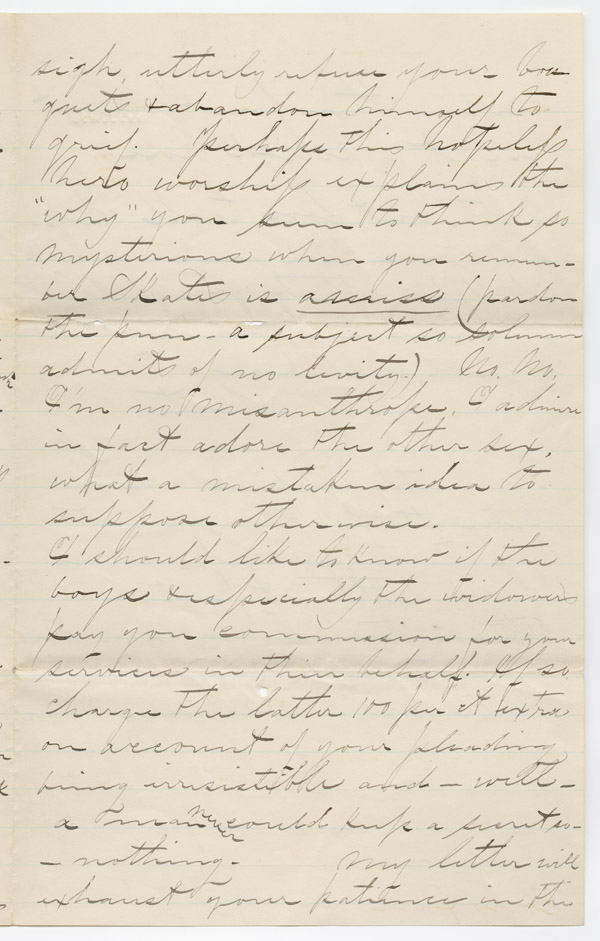 sigh, utterly refuse your bou-
quets & abandon himself to
grief. Perhaps this hopeless
hero worship explains the
"why" you seem to think so
mysterious when you remem-
ber Skates is (pardon
the pun - a subject so solumn
admits of no levity.) No, No,
I'm no misanthrope, I admire
in fact adore the other sex,
what a mistaken idea to
suppose otherwise.
I should like to know if the
boys & especially the widowers
pay you commission for your
services in their behalf. If so
charge the latter 100 per ct extra
on account of your pleading
being irresistible and - well -
a man never could keep a secret so -
- nothing. My letter will
exhaust your patience in the